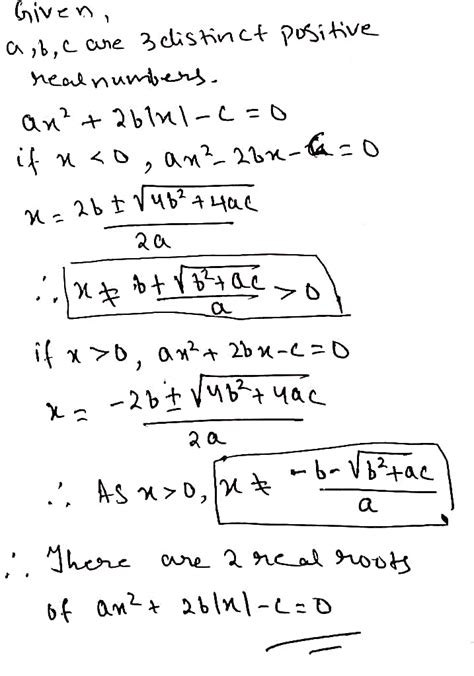 Given,
a, b, c are 3 distinct positive
real numbers.
ax² + 2b|x| - c = 0
if x < 0, ax² - 2bx - c = 0
x = (2b ± √(4b² + 4ac)) / 2a
∴ x ≠ (b + √(b² + ac)) / a > 0
if x > 0, ax² + 2bx - c = 0
x = (-2b ± √(4b² + 4ac)) / 2a
∴ As x > 0, x ≠ (-b - √(b² + ac)) / a
∴ There are 2 real roots
of ax² + 2b|x| - c = 0